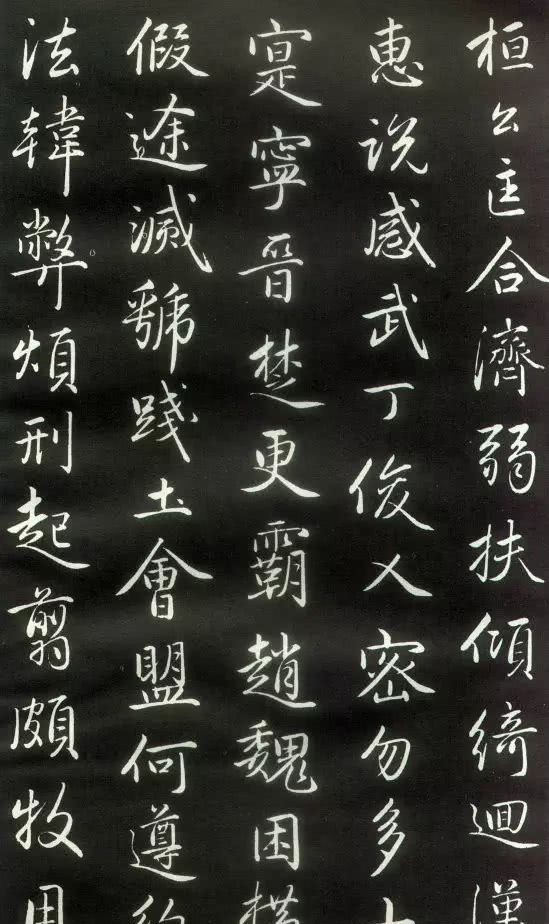 桓公匡合濟弱扶傾綺迴漢
惠说感武丁俊乂密勿多士
寔寧晉楚更霸趙魏困橫
假途滅虢踐土會盟何遵約
法韓弊煩刑起翦頗牧用